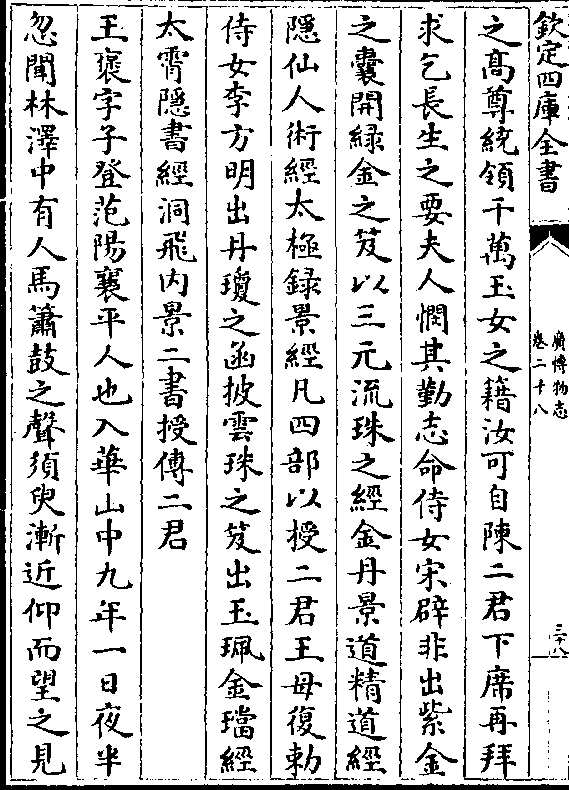 欽定四庫全書
廣博物志
卷二十八
三十八
之髙尊統領千萬玉女之籍汝可自陳二君下席再拜
求乞長生之要夫人憫其勤志命侍女宋辟非出紫金
之囊開緑金之笈以三元流珠之經金丹景道精道經
隱仙人術經太極録景經凡四部以授二君王母復勅
侍女李方明出丹瓊之函披雲珠之笈出玉珮金璫經
太霄隱書經洞飛内景二書授傳二君
王褒字子登范陽襄平人也入華山中九年一日夜半
忽聞林澤中有人馬簫鼓之聲須臾漸近仰而望之見